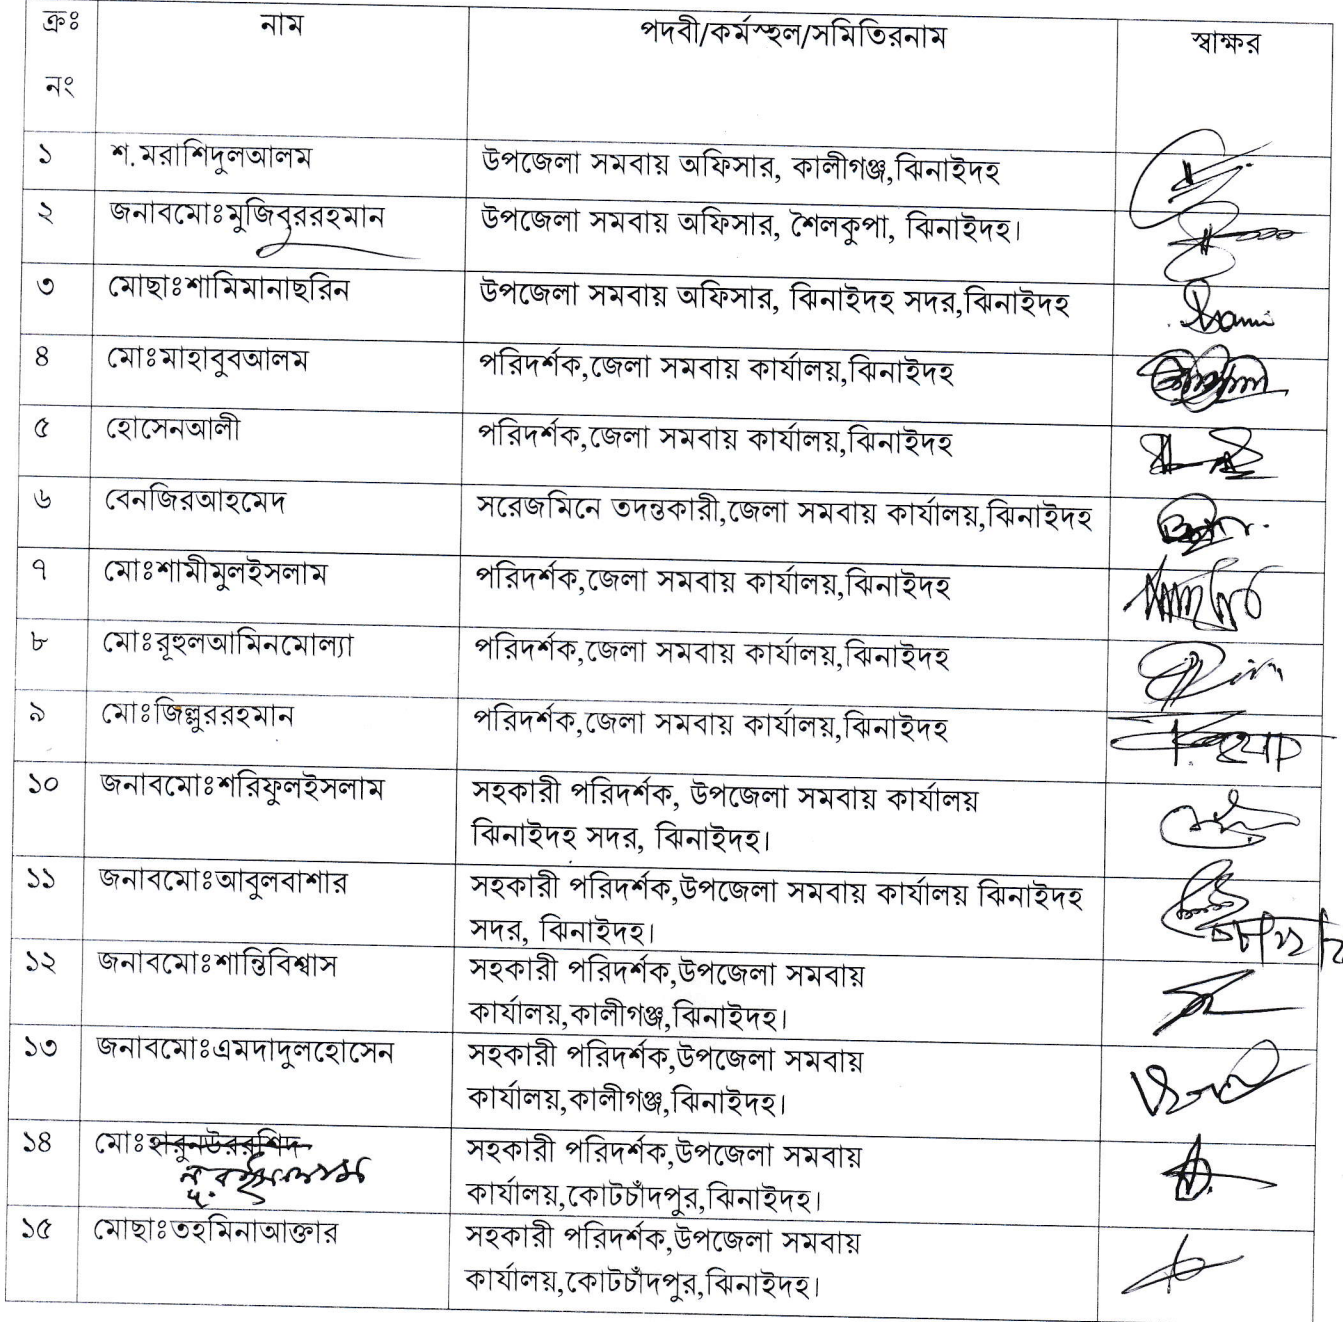 ক্রঃ নাম পদবী/কর্মস্হল/সমিতিরনাম স্বাক্ষর
নং
১ শ.মরাশিদুলআলম উপজেলা সমবায় অফিসার, কালীগঞ্জ,ঝিনাইদহ
২ জনাবমোঃমুজিবুররহমান উপজেলা সমবায় অফিসার, শৈলকুপা, ঝিনাইদহ।
৩ মোছাঃশামিমানাছরিন উপজেলা সমবায় অফিসার, ঝিনাইদহ সদর,ঝিনাইদহ
৪ মোঃমাহাবুবআলম পরিদর্শক,জেলা সমবায় কার্যালয়,ঝিনাইদহ
৫ হোসেনআলী পরিদর্শক,জেলা সমবায় কার্যালয়,ঝিনাইদহ
৬ বেনজিরআহমেদ সরেজমিনে তদন্তকারী,জেলা সমবায় কার্যালয়,ঝিনাইদহ
৭ মোঃশামীমুলইসলাম পরিদর্শক,জেলা সমবায় কার্যালয়,ঝিনাইদহ
৮ মোঃরূহুলআমিনমোল্যা পরিদর্শক,জেলা সমবায় কার্যালয়,ঝিনাইদহ
৯ মোঃজিল্লুররহমান পরিদর্শক,জেলা সমবায় কার্যালয়,ঝিনাইদহ
১০ জনাবমোঃশরিফুলইসলাম সহকারী পরিদর্শক, উপজেলা সমবায় কার্যালয়
ঝিনাইদহ সদর, ঝিনাইদহ।
১১ জনাবমোঃআবুলবাশার সহকারী পরিদর্শক,উপজেলা সমবায় কার্যালয় ঝিনাইদহ
সদর, ঝিনাইদহ।
১২ জনাবমোঃশান্তিবিশ্বাস সহকারী পরিদর্শক,উপজেলা সমবায়
কার্যালয়,কালীগঞ্জ,ঝিনাইদহ।
১৩ জনাবমোঃএমদাদুলহোসেন সহকারী পরিদর্শক,উপজেলা সমবায়
কার্যালয়,কালীগঞ্জ,ঝিনাইদহ।
১৪ মোঃহারুনউররশিদ সহকারী পরিদর্শক,উপজেলা সমবায়
নূরইসলাম কার্যালয়,কোটচাঁদপুর,ঝিনাইদহ।
১৫ মোছাঃতহমিনাআক্তার সহকারী পরিদর্শক,উপজেলা সমবায়
কার্যালয়,কোটচাঁদপুর,ঝিনাইদহ।